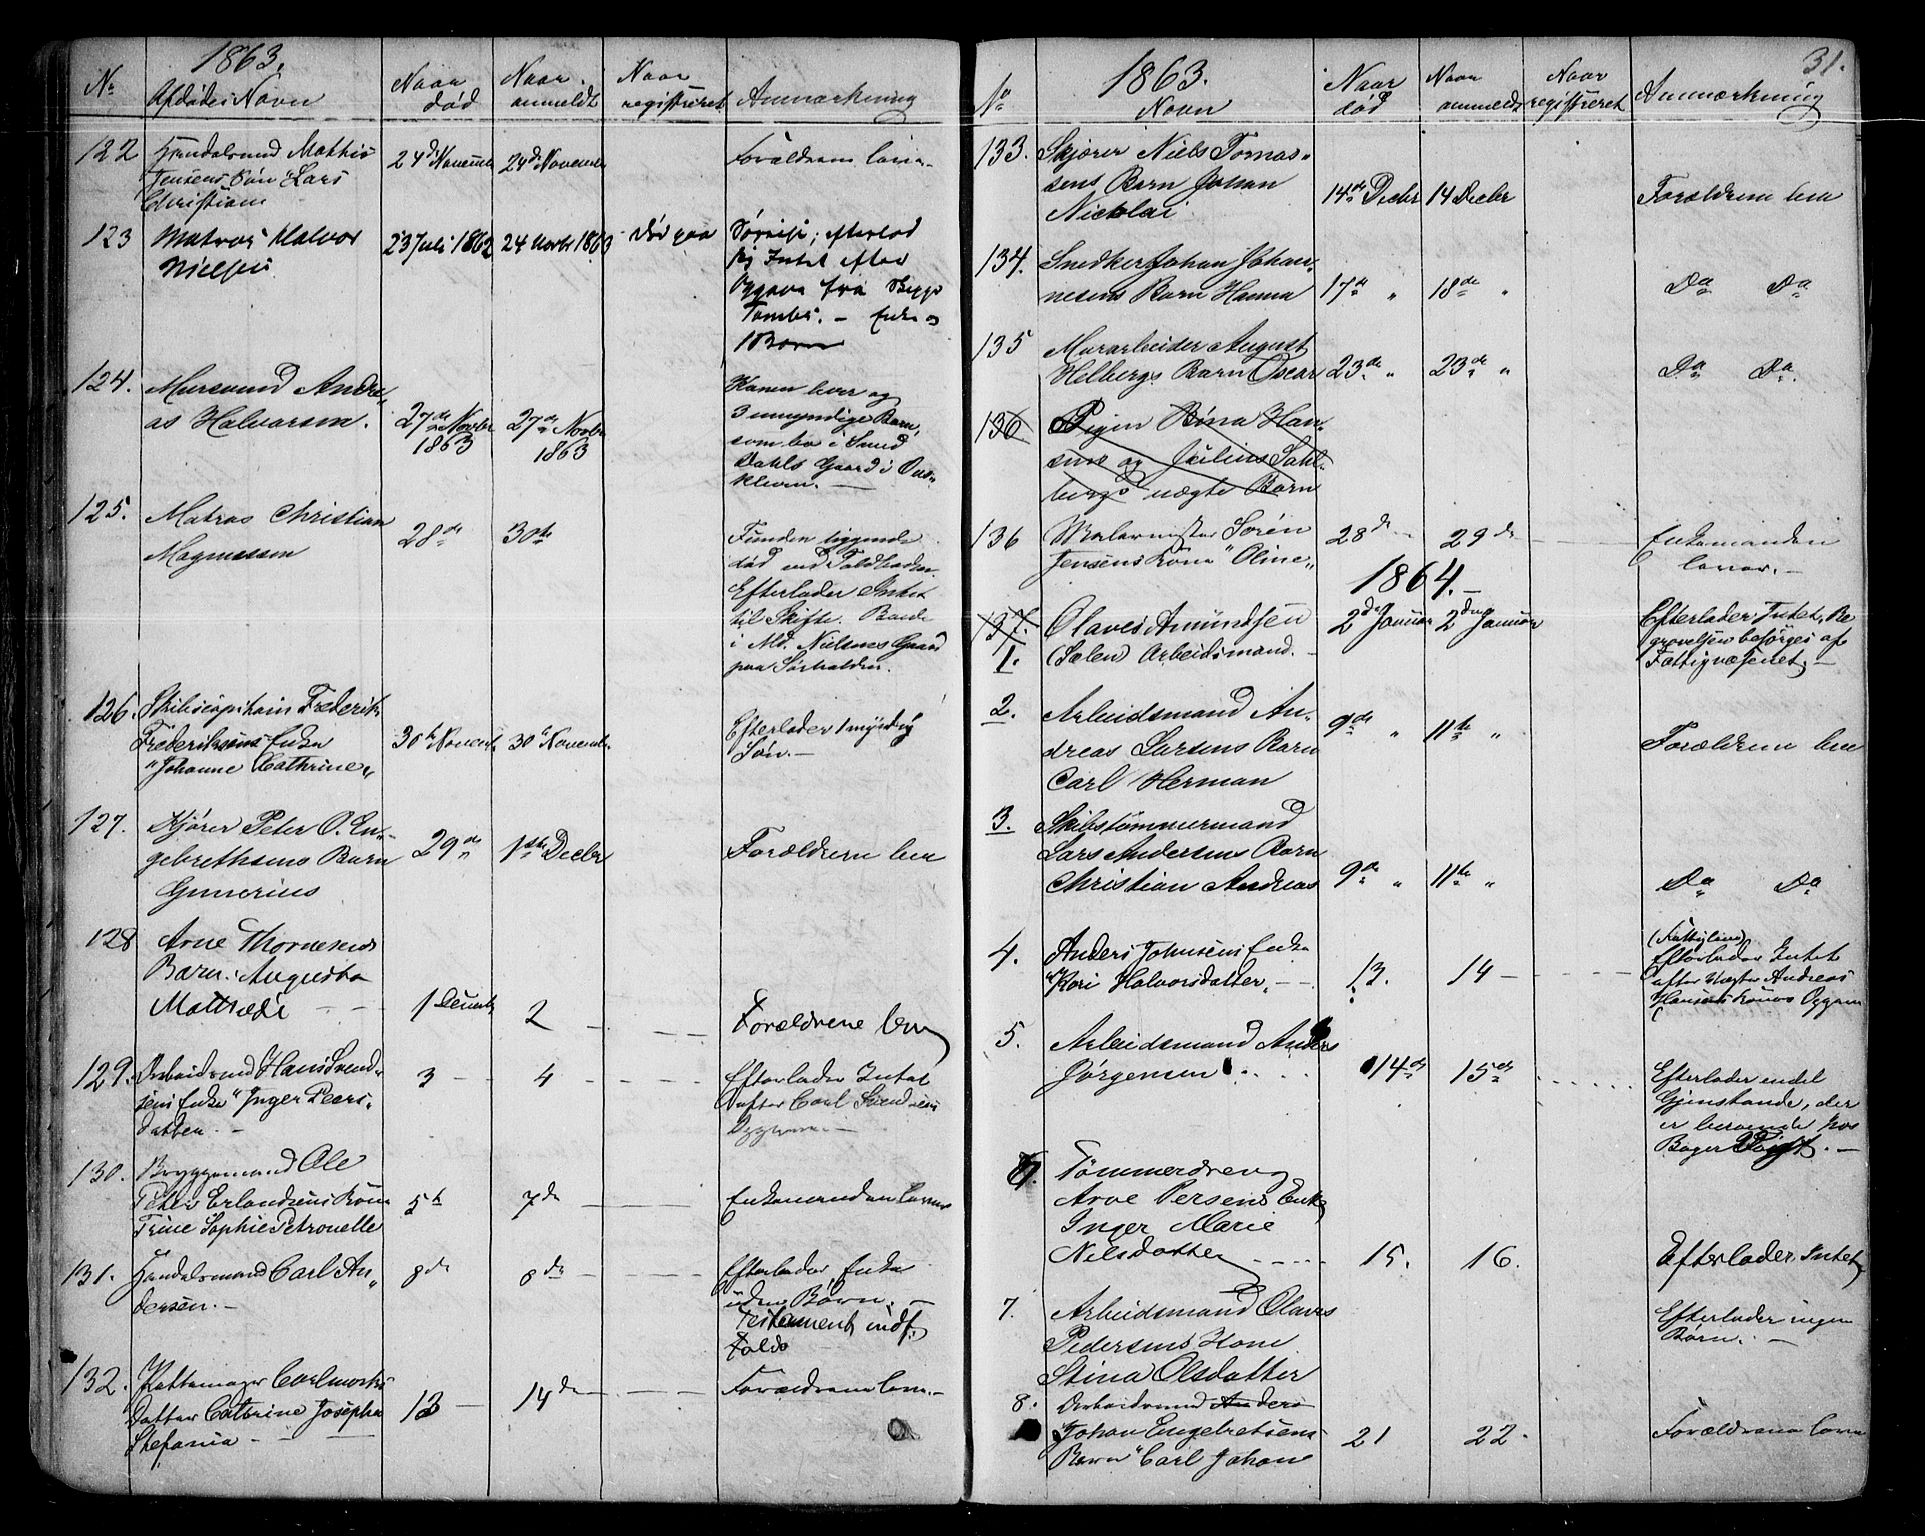 1863.
No Afdødes Navn Naar død Naar anmeldt Naar registreret Anmærkning
122 Handelsmd Mathis 24de Novemb 24de Novemb Forældrene leve.
Jensens Søn "Lars
Christian
123 Matros Halvor 23 Juli 1862 24 Novbr 1863 død paa Søreise; efterlod
Nielsen sig Intet efter
Opgave fra
Enke og
1 Barn
124. Muursvend Andre„
as Halvorsen. 27de Novbr 1863 27de Novbr 1863
Konen lever og
3 umyndige Børn,
som bo i Smed
Dahls Gaard i
125. Matros Christian
Magnussen 28de 30te
Funden liggende
død ved Toldboden.
Efterlader Intet
til Skifte. Boede
i Md. Nielsens Gaard
paa Sørhalden.
126. Skibscapitain Frederik
Frederiksens Enke 30te Novemb 30te Novemb
"Johanne Cathrine„
Efterlader 1 myndig
Søn.
127. Kjører Peter O. En„
gebrethsens Barn 29de 1ste Decbr Forældrene leve
Gunerius
128 Arne Thornesens
Barn. Augusta
Mathilde 1 Decemb 2 Forældrene leve
129. Arbeidsmd Hans Svend„ 3 4 Efterlader Intet
sens Enke "Inger Peers„ efter Carl Svendsens
datter. Opgave.
130. Bryggemand Ole
Peter Erlandsens Kone 5te 7de Enkemanden lever
Trine Sophie Petronelle
131. Handelsmand Carl An„ 8de 8de Efterlader Enke
dersen. uden Børn.
Testament indf.
132. Carl
Datter Cathrine Josepha 13 14de Forældrene leve.
Stefania
31.
1863.
No Navn Naar død Naar anmeldt Naar registreret Anmærkning
133. Skjører Niels Tornas„
sens Barn Johan 14de Decbr 14 Decbr Forældrene leve
Nickolai
134. Snedker Johan Johan„
nesens Barn Hanna 17de " 18de " Do Do
135 Murarbeider August
Helbergs Barn Oscar 23de " 23de " Do Do
136 Pigen Bina Han„
sens og Julius Sahl„
bergs uægte Barn
136 Malermester Sørén 28de 29de Enkemanden
Jensens Kone "Oline„ lever.
1864.
137. Olaves Amundsen 2de Januar 2den Januar Efterlader Intet, Be
1. (Sælen) Arbeidsmand. gravelsen besørges af
Fattigvæsenet.
2. Arbeidsmand An„
dreas Larsens Barn 9de " 11te " Forældrene leve
Carl Herman
3. Skibstømmermand
Lars Andersens Barn
Christian Andreas 9de " 11te " Do Do
4. Anders Johnsens Enke
"Kari Halvorsdatter. 13. 14
Efterlader Intet
efter Andreas
Hansens Kones Opgave
5. Arbeidsmand Anders
Jørgensen 14de 15de
Efterlader endel
Gjenstande, der
er beroende hos
Bager Voigt.
6. Tømmerdreng
Arve Persens Enke
Inger Marie
Nilsdatter 15. 16. Efterlader Intet
7. Arbeidsmand Olaves
Pedersens Kone
Stina Olsdatter
Efterlader ingen
Børn.
8. Arbeidsmd Anders
Johan Engebretsens 21 22 Forældrene leve
Barn "Carl Johan